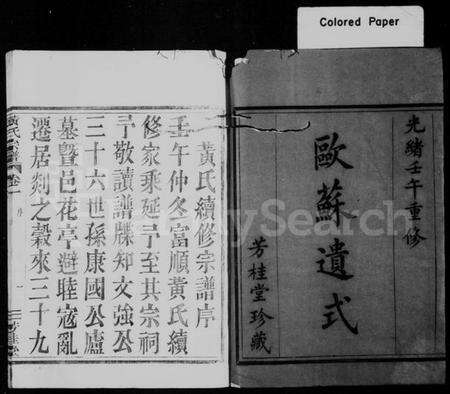 Colored Paper
光緒壬午重修
歐蘇遺式
芳桂堂珍藏
黃氏續修宗譜序
壬午仲冬富順黃氏續
修家乘延予至其宗祠
予敬讀譜牒知文強公
三十六世孫康國公廬
墓暨邑花亭避睦寇亂
遷居剡之穀來三十九
卷一
序
FamilySearch